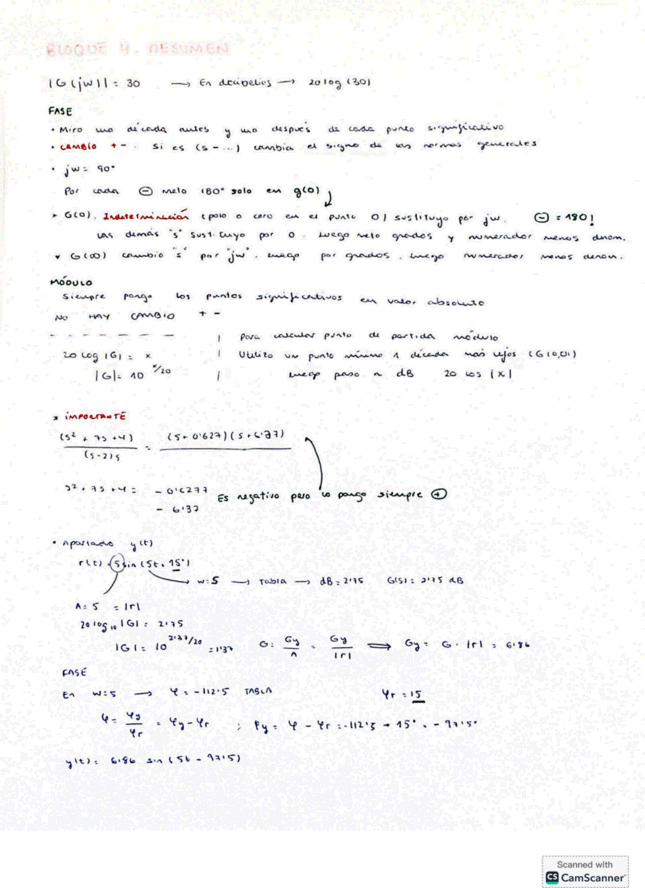 BLOQUE 4. RESUMEN
|G(jw)| = 30 → En decibelios → 20 log (30)
FASE
• Miro una década antes y una después de cada punto significativo
• CAMBIO + - . Si es (s - ...) cambia el signo de las normas generales
• jw = 90°
Por cada ⊖ meto 180° solo en g(0)
* G(0). Indeterminación (polo o cero en el punto 0) sustituyo por jw. ⊖ = 180!
Las demás "s" sustituyo por 0. Luego meto grados y numerador menos denom.
* G(∞) cambio "s" por "jw". Luego por grados. Luego numerador menos denom.
MÓDULO
Siempre pongo los puntos significativos en valor absoluto
NO HAY CAMBIO + -
- - - - - - - | Para calcular punto de partida módulo
20 log |G| = x | Utilizo un punto mínimo 1 década más lejos (G(0,01)
|G| = 10^x/20 | Luego paso a dB 20 log |x|
* IMPORTANTE
(s² + 7s + 4) / (s-2)s = (s + 0'627)(s + 6'37)
s² + 7s + 4 = - 0'6277 Es negativo pero lo pongo siempre ⊕
- 6'37
• Apartado y(t)
r(t) = 5 sin (5t + 15°)
→ w = 5 → Tabla → dB = 2'75 G(5) = 2'75 dB
A = 5 = |r|
20 log₁₀ |G| = 2'75
|G| = 10^2'37/20 = 1'37 G = Gy/A = Gy/|r| ⟹ Gy = G · |r| = 6'86
FASE
En w = 5 → φ = -112'5 TABLA φr = 15
φ = φy/φr = φy - φr ; φy = φ - φr = -112'5 + 15° = - 97'5°
y(t) = 6'86 sin (5t - 97'5)
Scanned with
CS CamScanner